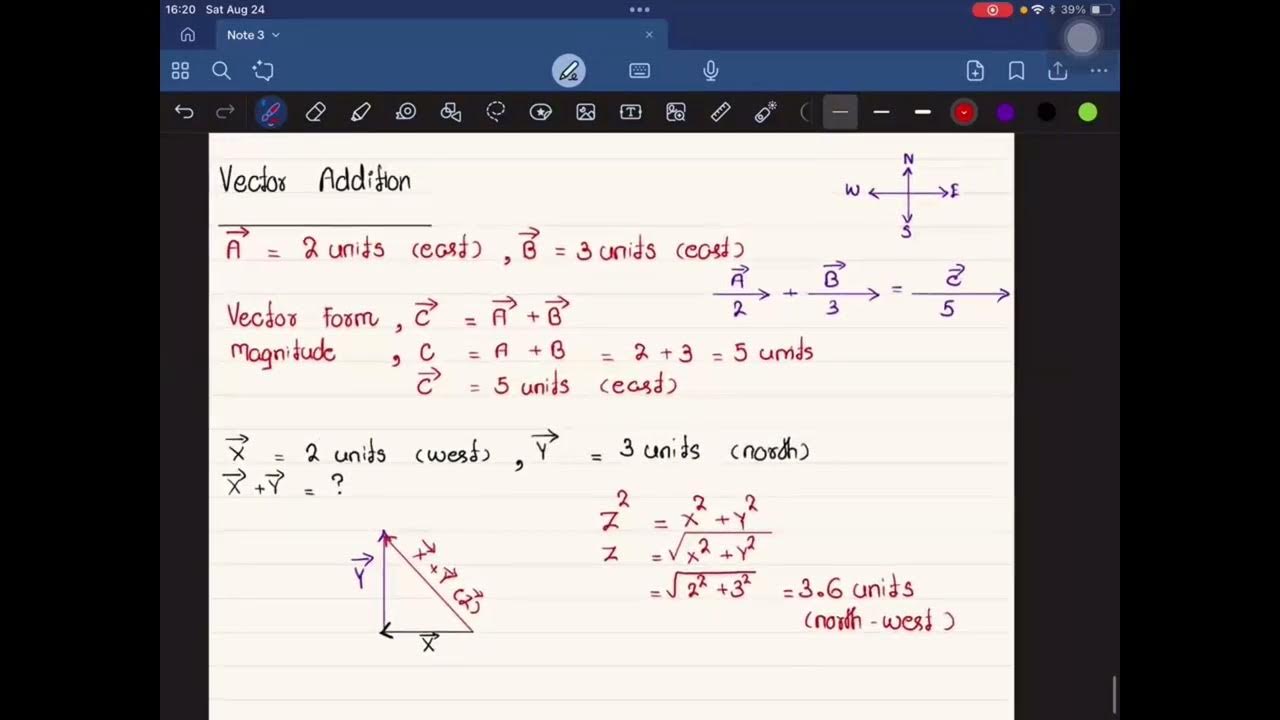 16:20 Sat Aug 24
39%
Note 3
Vector Addition
N
W E
S
A = 2 units (east), B = 3 units (east)
A + B = C
2 3 5
Vector Form, C = A + B
Magnitude, C = A + B = 2 + 3 = 5 units
C = 5 units (east)
X = 2 units (west), Y = 3 units (north)
X + Y = ?
Z² = X² + Y²
Z = √X² + Y²
= √2² + 3² = 3.6 units
(north-west)
Y
X + Y (Z)
X